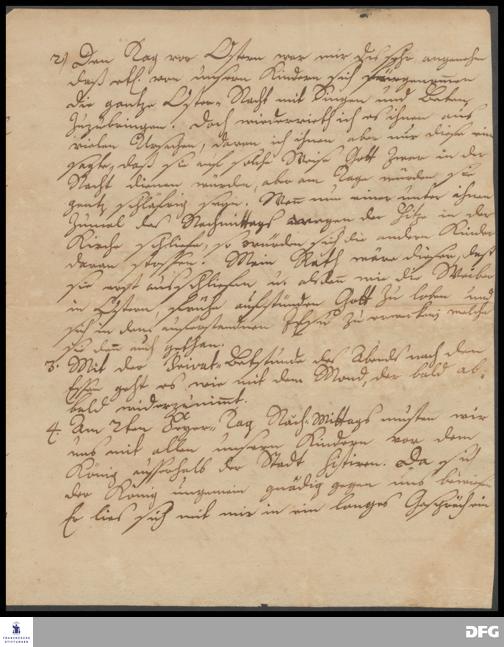 2) Den Tag vor Ostern war mir dieses sehr angenehm
daß etl. von unsern Kindern sich vorgenommen
die gantze Oster-Nacht mit Singen und Beten
zuzubringen. Doch wiederrieth ich es ihnen aus
vielen Ursachen, davon ich ihnen aber nur diese eine
sagte, daß sie auf solche Weise Gott zwar in der
Nacht dienen würden, aber am Tage würden sie
gantz schläfrig seyn. Wenn nun einer unter ihnen
zumal des Nachmittags wegen der Hitze in der
Kirche schliefe, so würden sich die andern Kinder
daran stoßen. Mein Rath wäre dieser, daß
sie erst ausschliefen, u. alsdenn wie die Weiber
in Ostern, frühe aufstünden Gott zu loben und
sich in dem auferstandenen Jesu zu erwecken welches
sie denn auch gethan.
3. Mit der Privat-Betstunde des Abends nach dem
Essen geht es wie mit dem Mond, der bald ab-
bald wiederzunimmt.
4. Am 2ten Feyer-Tag Nach-Mittags musten wir
uns mit allen unsern Kindern vor dem
König außerhalb der Stadt sistiren. Da sich
der König ungemein gnädig gegen uns bewiese
Er lies sich mit mir in ein langes Gespräch ein
FRANCKESCHE
STIFTUNGEN
DFG